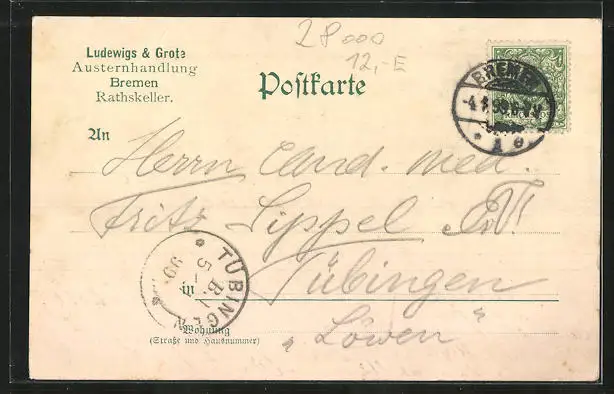 28000
12,-
Ludewigs & Grote
Austernhandlung
Bremen
Rathskeller.
Postkarte
BREMEN
1 e
An
Herrn Cand. med.
Fritz Lippel
TÜBINGEN
5
99
in Tübingen
Wohnung
(Straße und Hausnummer)
„Löwen"